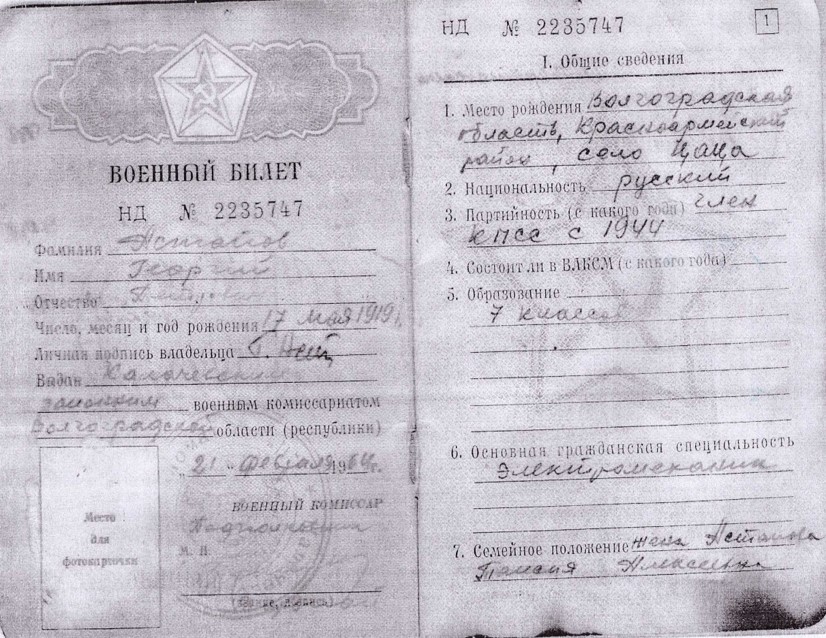 ВОЕННЫЙ БИЛЕТ
НД № 2235747
Фамилия Астахов
Имя Георгий
Отчество
Число, месяц и год рождения 17 мая 1919 г.
Личная подпись владельца Г. Аст
Выдан Калачевским
районным военным комиссариатом
Волгоградской области (республики)
"21" февраля 1964 г.
Место
для
фотокарточки
ВОЕННЫЙ КОМИССАР
Подполковник
М. П.
(звание, подпись)
НД № 2235747
1
I. Общие сведения
1. Место рождения Волгоградская
область, Красноармейский
район, село Цаца
2. Национальность русский
3. Партийность (с какого года) член
КПСС с 1944
4. Состоит ли в ВЛКСМ (с какого года)
5. Образование
7 классов
6. Основная гражданская специальность
Электромеханик
7. Семейное положение жена
Таисия